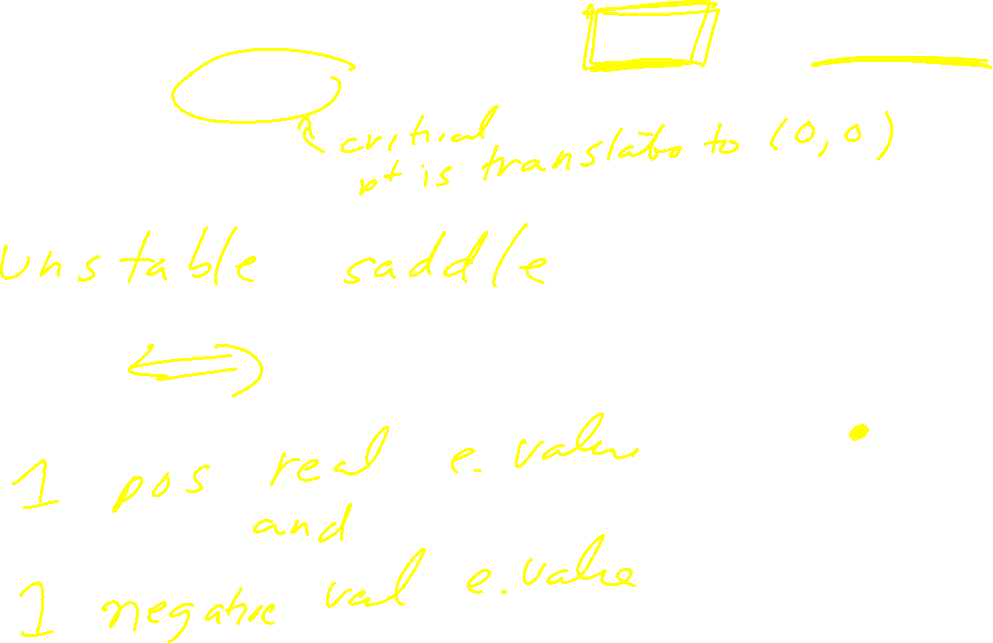 critical
pt is translates to (0,0)
unstable saddle
⟺
1 pos real e.value
and
1 negative real e.value